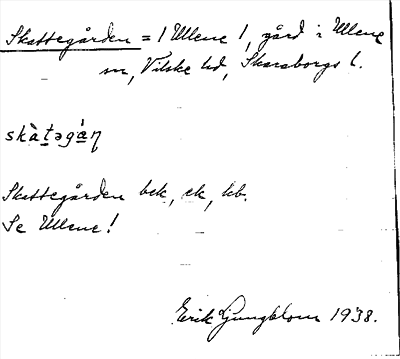 Skattegården = 1 Ullene 1, gård i Ullene
sn, Vilske hd, Skaraborgs l.
skàt̠əgá̠ɳ
Skattegården bek, ek, kb.
Se Ullene!
Erik Ljungblom 1938.